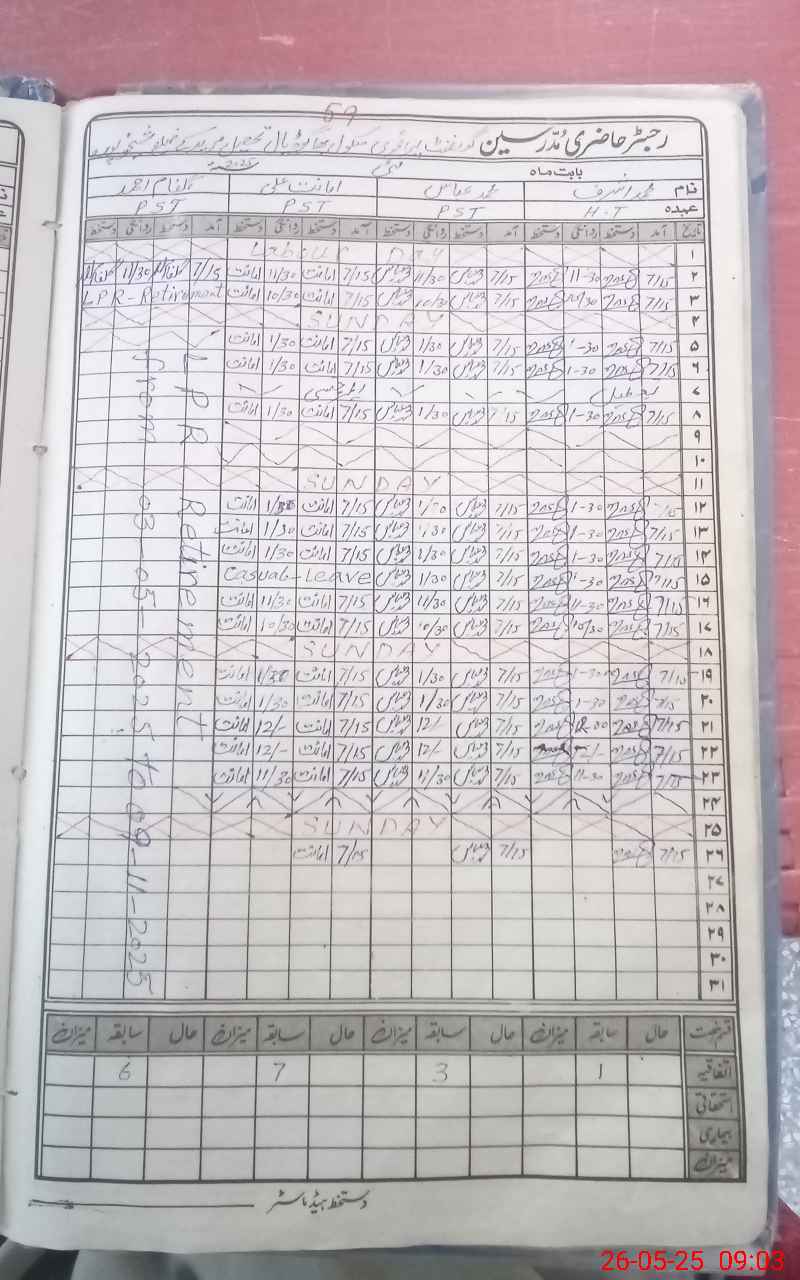 59
رجسٹر حاضری مدرسین گورنمنٹ پرائمری سکول تحصیل ضلع شیخوپورہ
بابت ماہ مئی 2025ء
نام محمد اشرف محمد عباس امانت علی گلفام احمد
عہدہ H.T PST PST PST
تاریخ آمد دستخط روانگی دستخط آمد دستخط روانگی دستخط آمد دستخط روانگی دستخط آمد دستخط روانگی دستخط
۱ Labour DAY
۲ 7/15 11-30 7/15 11/30 7/15 امانت 11/30 امانت 7/15 11/30
۳ 7/15 10/30 7/15 10/30 7/15 امانت 10/30 امانت LPR-Retirement
۴ SUNDAY
۵ 7/15 1-30 7/15 1/30 7/15 امانت 1/30 امانت
۶ 7/15 1-30 7/15 1/30 7/15 امانت 1/30 امانت
۷
۸ 7/15 1-30 7/15 1/30 7/15 امانت 1/30 امانت
۹
۱۰
۱۱ SUNDAY
۱۲ 7/15 1-30 7/15 1/30 7/15 امانت 1/30 امانت
۱۳ 7/15 1-30 7/15 1/30 7/15 امانت 1/30 امانت
۱۴ 7/15 1-30 7/15 1/30 7/15 امانت 1/30 امانت
۱۵ 7/15 1-30 7/15 1/30 Casual-Leave
۱۶ 7/15 11-30 7/15 11/30 7/15 امانت 11/30 امانت
۱۷ 7/15 10/30 7/15 10/30 7/15 امانت 10/30 امانت
۱۸ SUNDAY
۱۹ 7/15 1-30 7/15 1/30 7/15 امانت 1/30 امانت
۲۰ 7/15 1-30 7/15 1/30 7/15 امانت 1/30 امانت
۲۱ 7/15 12-00 7/15 12/- 7/15 امانت 12/- امانت
۲۲ 7/15 7/15 12/- 7/15 امانت 12/- امانت
۲۳ 7/15 11-30 7/15 11/30 7/15 امانت 11/30 امانت
۲۴
۲۵ SUNDAY
۲۶ 7/15 7/15 7/15 امانت
۲۷
۲۸
۲۹
۳۰
۳۱
LPR Retirement
From 03-05-2025 to 09-11-2025
قسم رخصت حال سابقہ میزان حال سابقہ میزان حال سابقہ میزان حال سابقہ میزان
اتفاقیہ 1 3 7 6
استحقاقی
بیماری
میزان
دستخط ہیڈ ماسٹر
26-05-25 09:03